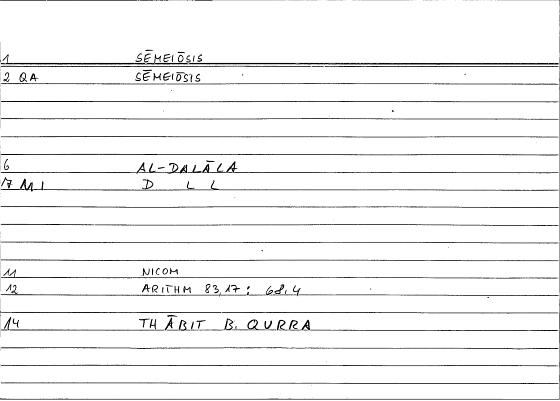 1 SĒMEIŌSIS
2 QA SĒMEIŌSIS
6 AL-DALĀLA
7 M 1 D L L
11 NICOM
12 ARITHM 83,17: 68.4
14 THĀBIT B. QURRA